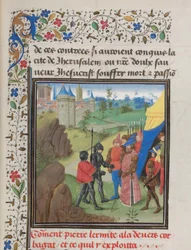 de ces contrees si auroient conquis la
cite de Jherusalem ou nre donlx sau
ueur Jhesucrist souffry mort et passiõ
Comẽt pierre lermite ala deuers cor
bagat et ce quil y exploita